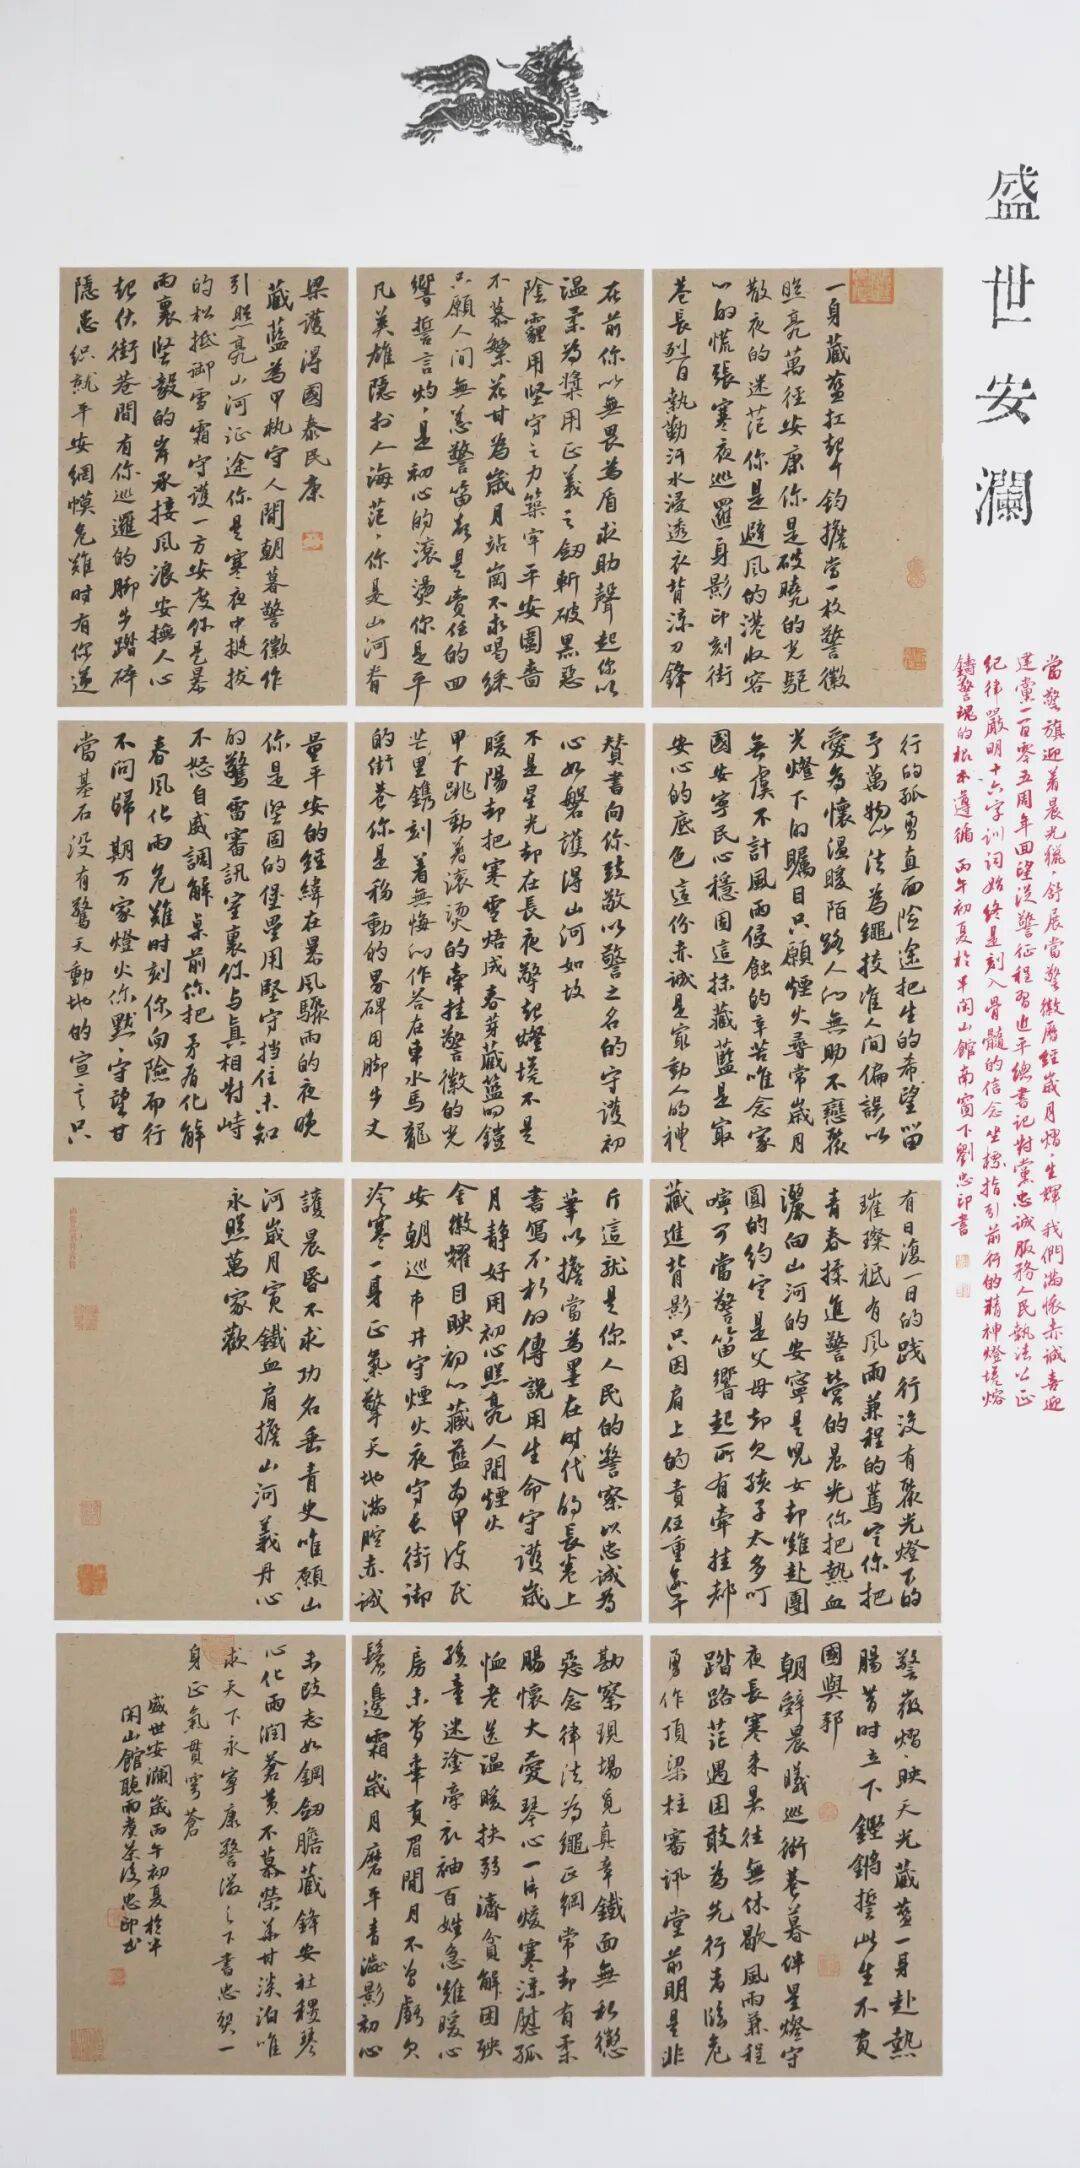 盛世安瀾
一身藏藍扛起千鈞擔當一枚警徽
照亮萬徑安康你是破曉的光驅
散夜的迷茫你是避風的港收容
心的慌張寒夜巡邏身影印刻街
巷長烈日執勤汗水浸透衣背涼刀鋒
在前你以無畏為盾求助聲起你以
溫柔為槳用正義之劍斬破黑惡
陰霾用堅守之力築牢平安圍牆
不慕繁花甘為歲月站崗不求喝綵
只願人間無恙警笛聲是責任的回
響誓言灼灼是初心的滾燙你是平
凡英雄隱於人海茫茫你是山河脊
梁護得國泰民康
藏藍為甲執守人間朝暮警徽作
引照亮山河征途你是寒夜中挺拔
的松抵御雪霜守護一方安度你是暴
雨裏堅毅的岸承接風浪安撫人心
起伏街巷間有你巡邏的腳步踏碎
隱患織就平安網幕危難時有你逆
行的孤勇直面險途把生的希望留
予萬物以法為繩校准人間偏誤以
愛為懷溫暖陌路人的無助不戀聚
光燈下的矚目只願煙火尋常歲月
無虞不計風雨侵蝕的辛苦唯念家
國安寧民心穩固這抹藏藍是最
安心的底色這份赤誠是最動人的禮
贊書向你致敬以警之名的守護初
心如磐護得山河如故
不是星光卻在長夜擎起燈塔不是
暖陽卻把寒雪焐成春芽藏藍的鎧
甲下跳動著滾燙的牽挂警徽的光
芒里鐫刻著無悔的作答在車水馬龍
的街巷你是移動的界碑用腳步丈
量平安的經緯在暴風驟雨的夜晚
你是堅固的堡壘用堅守擋住未知
的驚雷審訊室裏你與真相對峙
不怒自威調解桌前你把矛盾化解
春風化雨危難時刻你向險而行
不問歸期萬家燈火你默默守望甘
當基石沒有驚天動地的宣言只
有日復一日的踐行沒有聚光燈下的
璀璨祗有風雨兼程的篤定你把
青春揉進警營的晨光你把熱血
灑向山河的安寧是兒女卻難赴團
圓的約定是父母卻欠孩子太多叮
嚀可當警笛響起所有牽挂都
藏進背影只因肩上的責任重逾千
斤這就是你人民的警察以忠誠為
筆以擔當為墨在時代的長卷上
書寫不朽的傳說用生命守護歲
月靜好用初心照亮人間煙火
金徽耀目映初心藏藍為甲護民
安朝巡市井守煙火夜守長街御
冷寒一身正氣擎天地滿腔赤誠
護晨昏不求功名垂青史唯願山
河歲月寬鐵血肩擔山河義丹心
永照萬家歡
警徽熠熠映天光藏藍一身赴熱
腸昔時立下鏗鏘誓此生不負
國與邦
朝辭晨曦巡街巷暮伴星燈守
夜長寒來暑往無休歇風雨兼程
踏路茫遇困敢為先行者臨危
勇作頂梁柱審訊堂前明是非
勘察現場覓真章鐵面無私懲
惡念律法為繩正綱常卻有柔
腸懷大愛琴心一片暖寒涼慰孤
恤老送溫暖扶弱濟貧解困殃
孩童迷途牽衣袖百姓急難暖心
房未曾辜負眉間月不曾虧欠
鬢邊霜歲月磨平青澀影初心
未改志如鋼劍膽藏鋒安社稷琴
心化雨潤蒼黃不慕榮華甘淡泊唯
求天下永寧康警徽之下書忠契一
身正氣貫穹蒼
盛世安瀾歲丙午初夏於半
閑山館聽雨煮茶後忠印書
當警旗迎着晨光獵獵舒展當警徽歷經歲月熠熠生輝我們滿懷赤誠喜迎
建黨一百零五周年回望從警征程習近平總書記對黨忠誠服務人民執法公正
紀律嚴明十六字訓詞始終是刻入骨髓的信念坐標指引前行的精神燈塔熔
鑄警魂的根本遵循丙午初夏於半閑山館南窗下劉忠印書